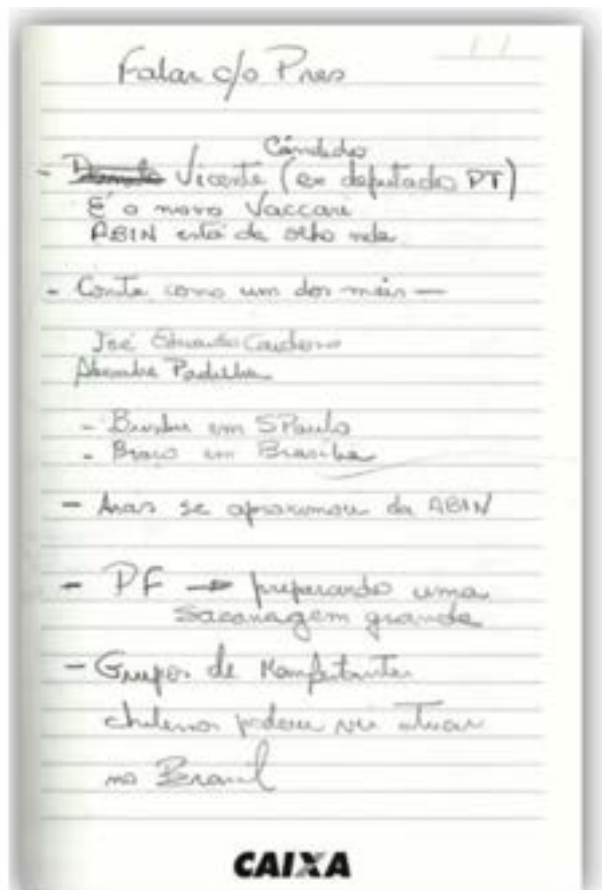 / /
Falar c/o Pres
Cândido
- Vicente (ex deputado PT)
É o novo Vaccari
ABIN está de olho nele.
- Conta como um dos mais —
José Eduardo Cardoso
Alexandre Padilha
- Bunker em SPaulo
- Braço em Brasília
- Aras se aproximou da ABIN
- PF → preparando uma
sacanagem grande
- Grupos de Manifestantes
chilenos podem vir atuar
no Brasil
CAIXA